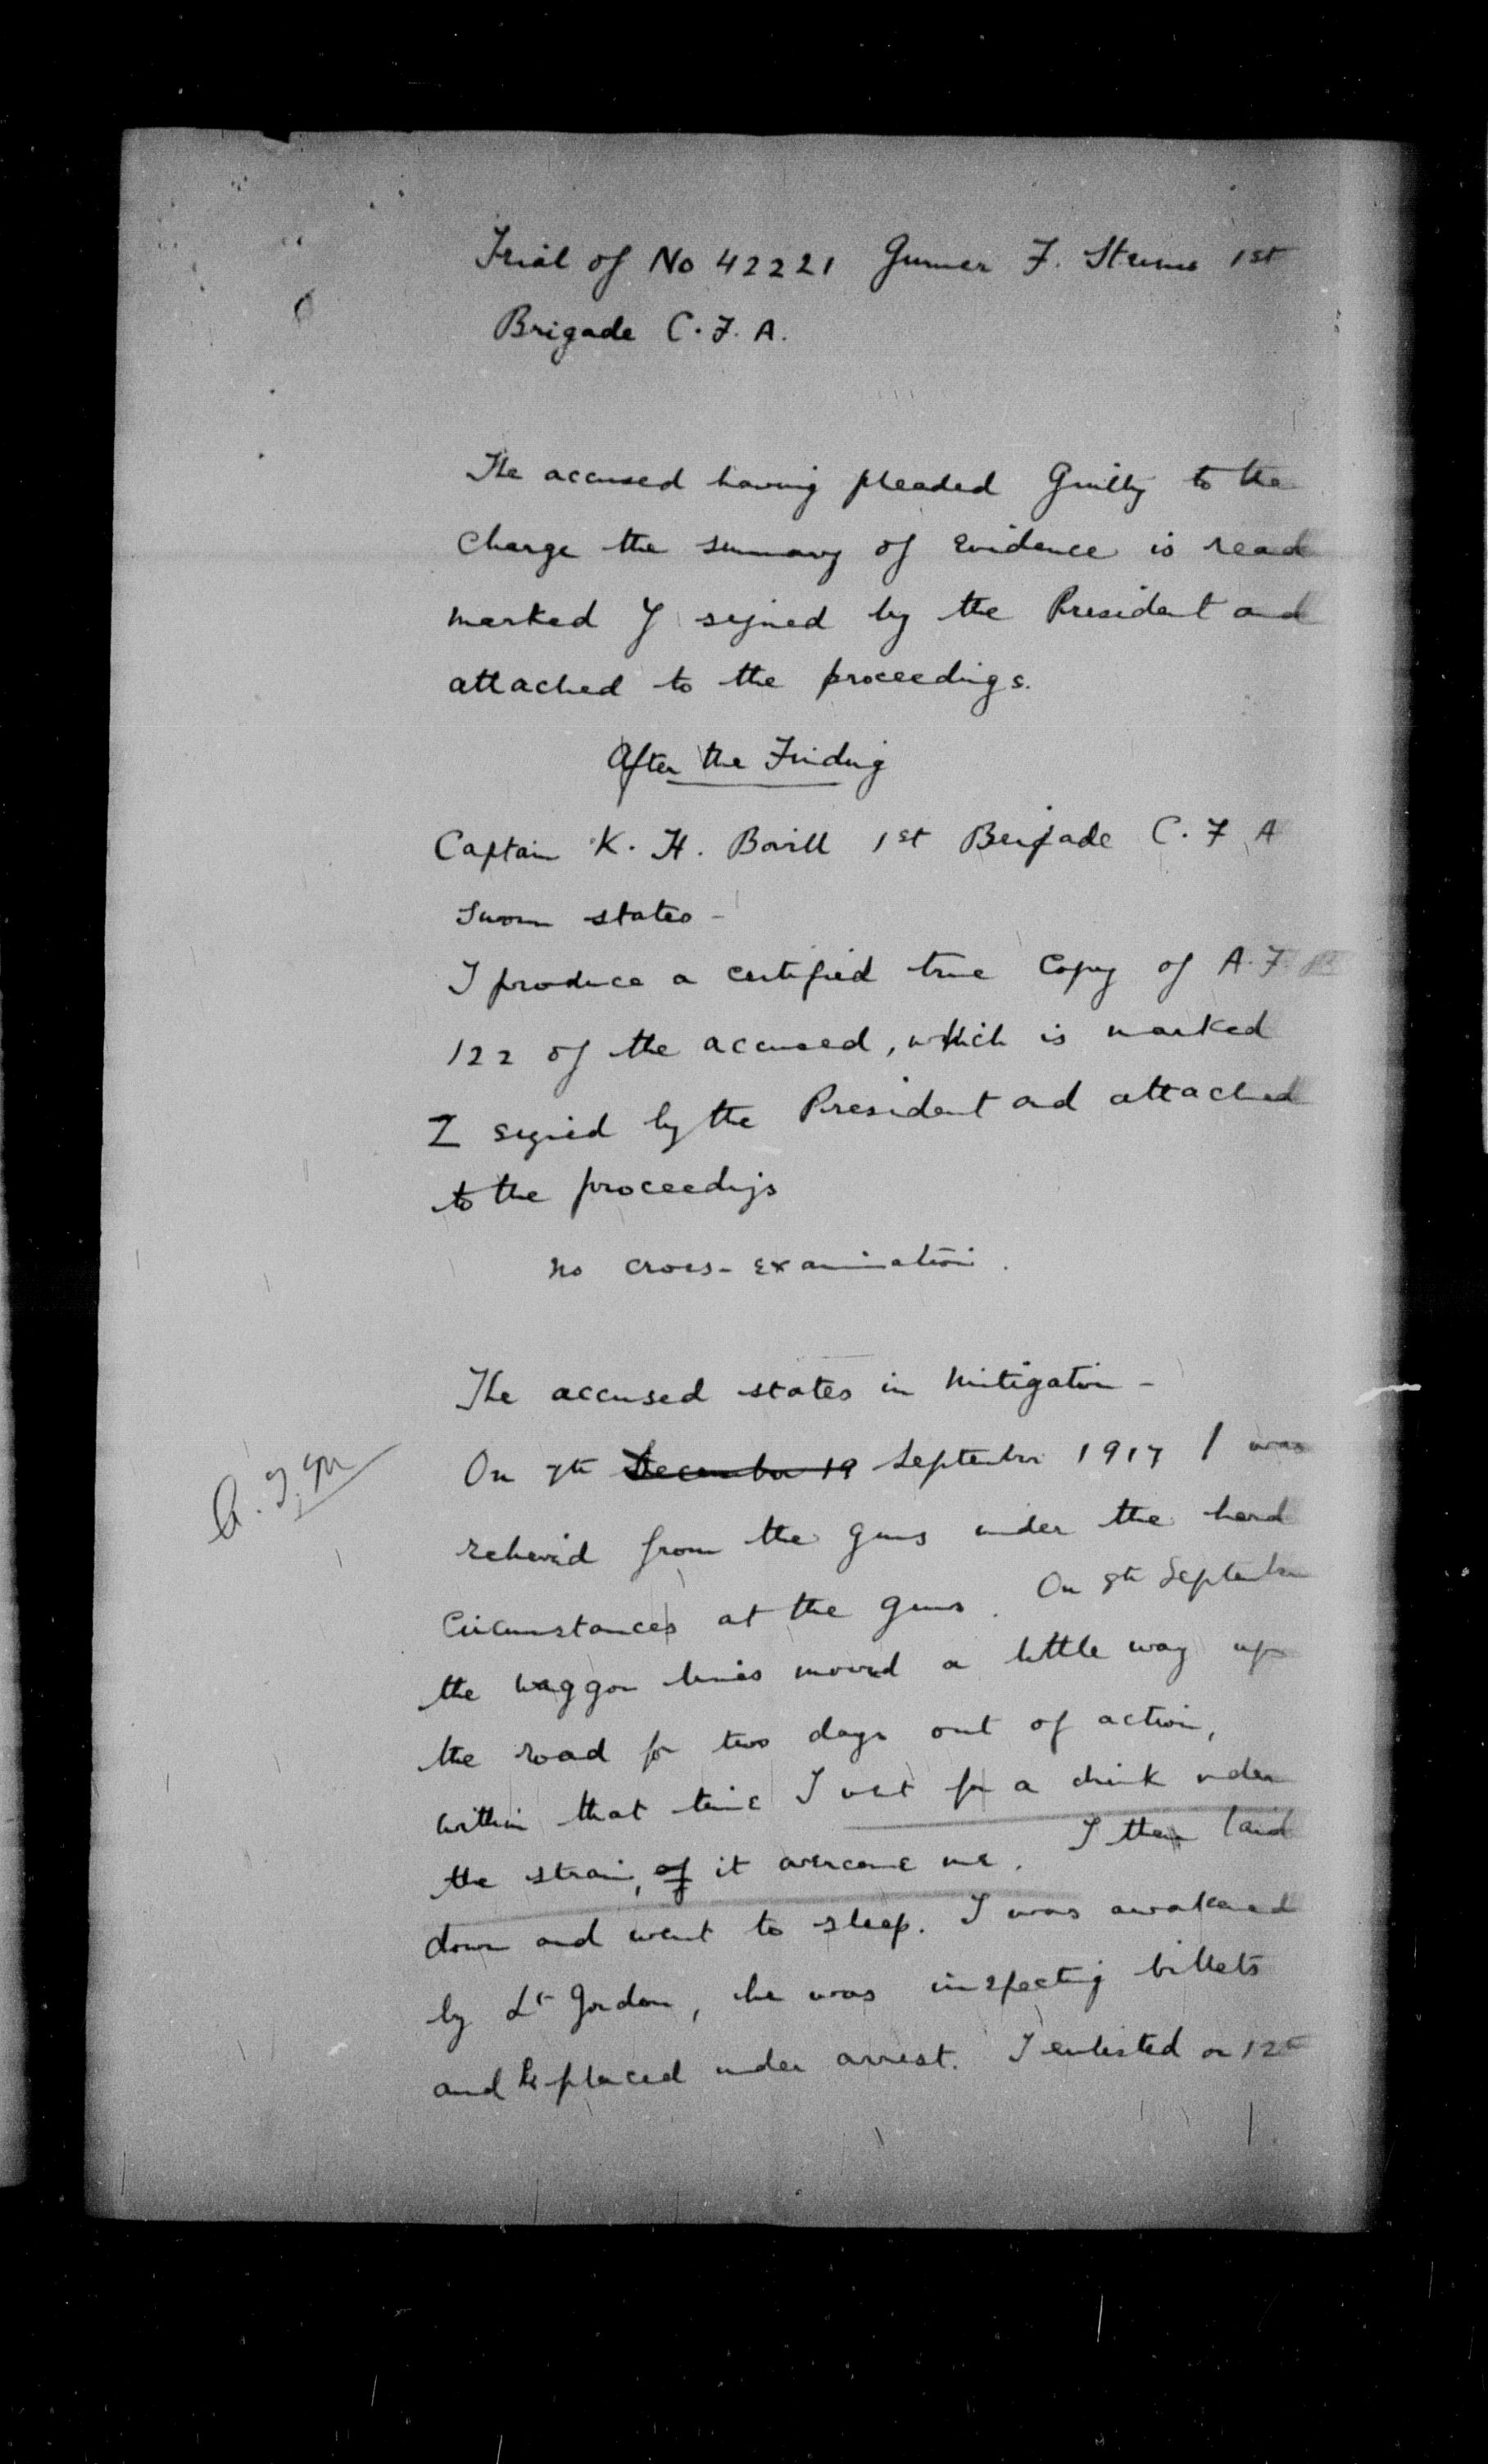 Trial of No 42221 Gunner F. 1st
Brigade C.F.A.
The accused having pleaded Guilty to the
Charge the summary of Evidence is read
marked Y signed by the President and
attached to the proceedings.
After the Finding
Captain K. H. Bovill 1st Brigade C. F A
Sworn states -
I produce a certified true Copy of A.F. B
122 of the accused, which is marked
Z signed by the President and attached
to the proceedings
No cross-examination.
The accused states in Mitigation -
On 7th December 19 September 1917 I was
relieved from the guns under the hard
Circumstances at the guns. On 8th September
the waggon lines moved a little way up
the road for two days out of action,
within that time I went for a drink under
the strain, of it overcame me. I then laid
down and went to sleep. I was awakened
by Lt Gordon, he was inspecting billets
and placed under arrest. I enlisted on 12th